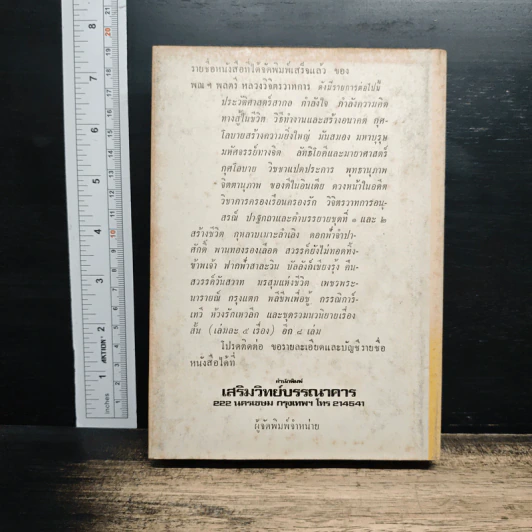 รายชื่อหนังสือที่ได้จัดพิมพ์เสร็จแล้ว ของ
พณฯ พลตรี หลวงวิจิตรวาทการ ดังมีรายการต่อไปนี้
ประวัติศาสตร์สากล กำลังใจ กำลังความคิด
ทางสู้ในชีวิต วิธีทำงานและสร้างอนาคต กุศ-
โลบายสร้างความยิ่งใหญ่ มันสมอง มหาบุรุษ
มหัศจรรย์ทางจิต ลัทธิโยคีและมายาศาสตร์
กุศโลบาย วิชชาแปดประการ พุทธานุภาพ
จิตตานุภาพ ของดีในอินเดีย ดวงหน้าในอดีต
วิชาการครองเรือนครองรัก วิจิตรวาทการอนุ-
สรณ์ ปาฐกถาและคำบรรยายชุดที่ ๑ และ ๒
สร้างชีวิต กุหลาบเมาะลำเลิง ดอกฟ้าจำปา-
ศักดิ์ พานทองรองเลือด สวรรค์ยังไม่ทอดทิ้ง-
ข้าพเจ้า ฟากฟ้าสาละวิน บัลลังก์เชียงรุ้ง คืน-
สวรรค์วันสวาท มรสุมแห่งชีวิต เพชรพระ-
นารายณ์ กรุงแตก พลีชีพเพื่อชู้ กรรณิการ์-
เทวี ห้วงรักเหวลึก และชุดรวมนวนิยายเรื่อง
สั้น (เล่มละ ๔ เรื่อง) อีก ๘ เล่ม
โปรดติดต่อ ขอรายละเอียดและบัญชีรายชื่อ
หนังสือได้ที่
สำนักพิมพ์
เสริมวิทย์บรรณาคาร
222 นครเขษม กรุงเทพฯ โทร 214541
ผู้จัดพิมพ์จำหน่าย
inches
1
2
3
4
5
6
7
8
10
20